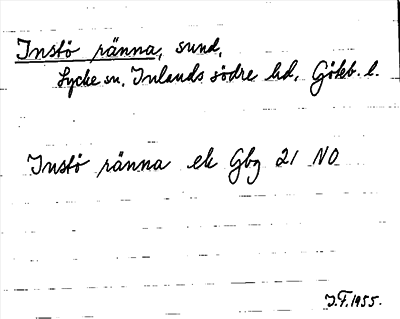 Instö ränna, sund,
Lycke sn, Inlands södre hd, Göteb. l.
Instö ränna ek Gbg 21 NO
J.F. 1955.